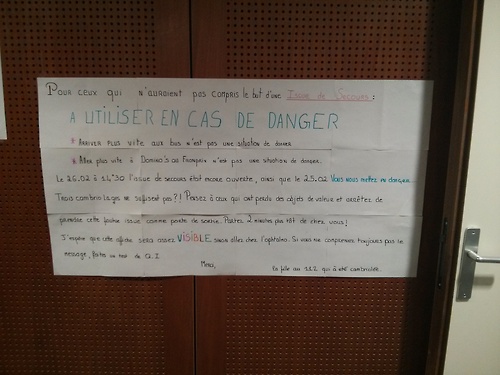 Pour ceux qui n'auraient pas compris le but d'une Issue de Secours :
A UTILISER EN CAS DE DANGER
* Arriver plus vite aux bus n'est pas une situation de danger
* Aller plus vite à Domino's ou Français n'est pas une situation de danger.
Le 26.02 à 14h30 l'issue de secours était encore ouverte, ainsi que le 25.02 Vous nous mettez en danger.
Trois cambriolages ne suffisent pas ?! Pensez à ceux qui ont perdu des objets de valeur et arrêtez de
prendre cette fichue issue comme porte de sortie. Partez 2 minutes plus tôt de chez vous !
J'espère que cette affiche sera assez VISIBLE sinon allez chez l'ophtalmo. Si vous ne comprenez toujours pas le
message, faites un test de Q.I.
Merci,
la fille au 112 qui a été cambriolée.